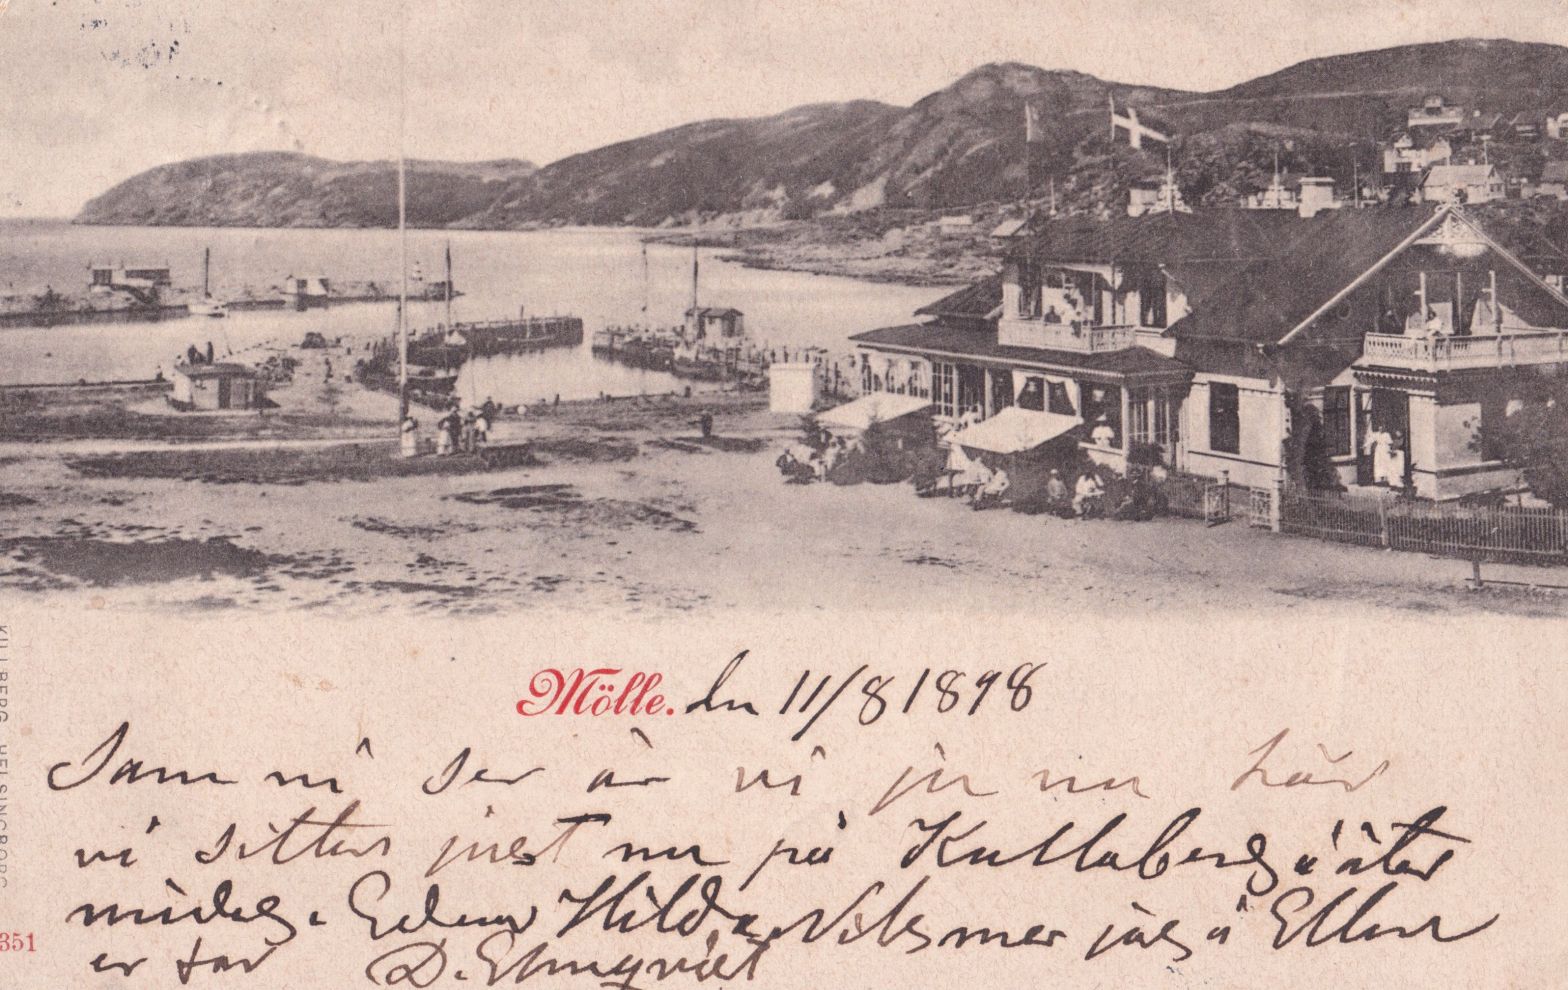 Mölle. den 11/8 1898
Som ni ser är vi ju nu här
vi sitter just nu på Kullaberg å äter
middag. Hilda, Nils mor jag å Ellen
er far D. Elmqvist
KILLBERG, HELSINGBORG
351